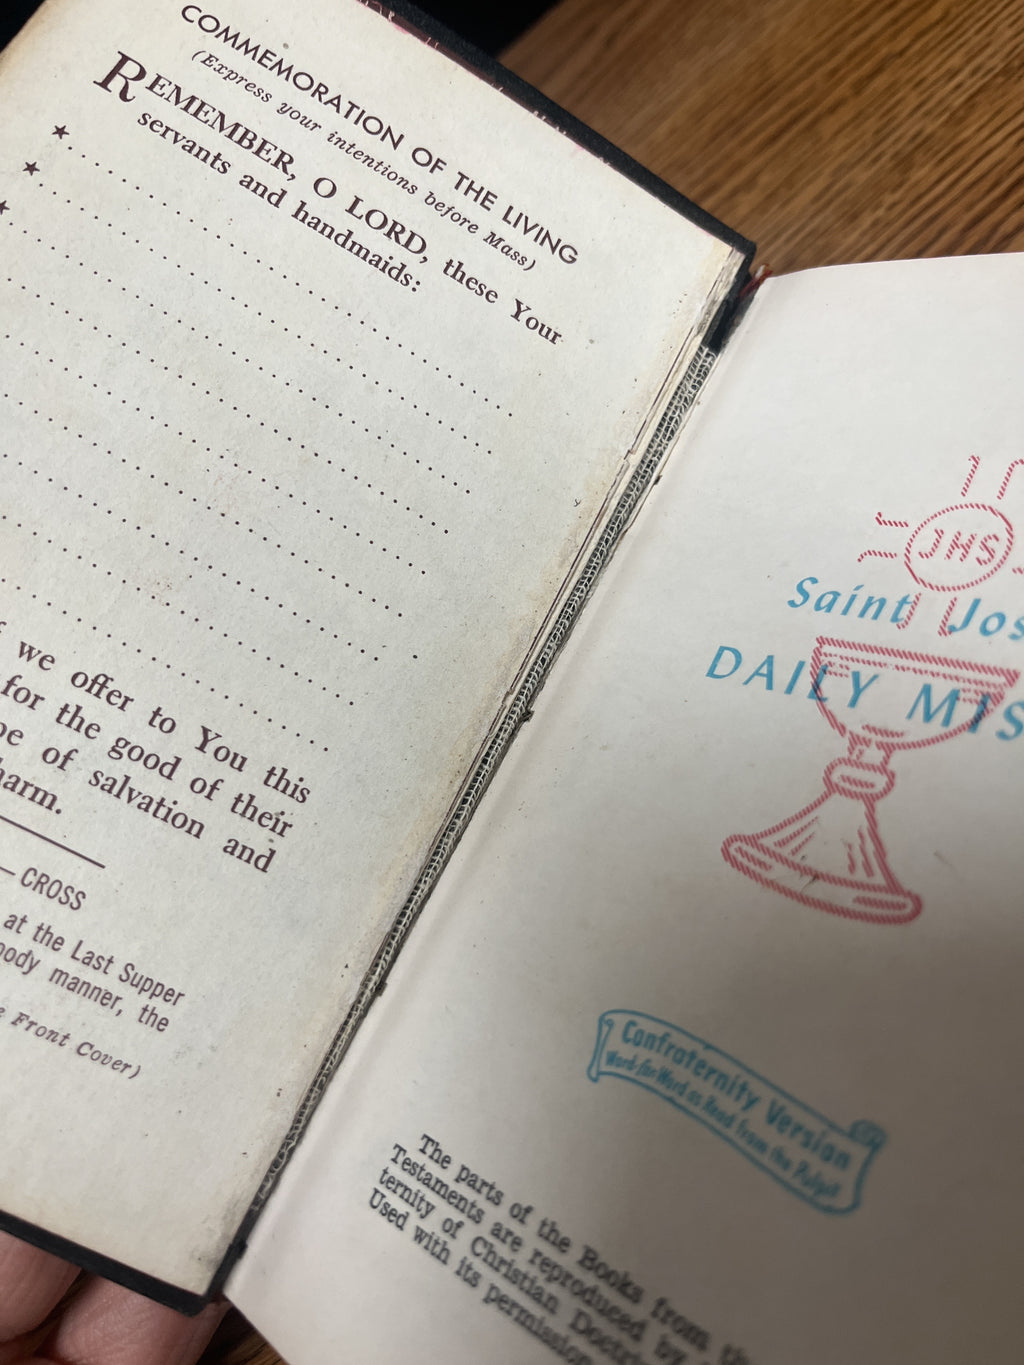 COMMEMORATION OF THE LIVING
(Express your intentions before Mass)
REMEMBER, O LORD, these Your
servants and handmaids:
we offer to You this
for the good of their
of salvation and
harm.
CROSS
at the Last Supper
manner, the
Front Cover)
JHS
Saint
DAILY
Confraternity Version
Word-for-Word as Read from the Pulpit
The parts of the Books from
Testaments are reproduced by
ternity of Christian
Used with its permission